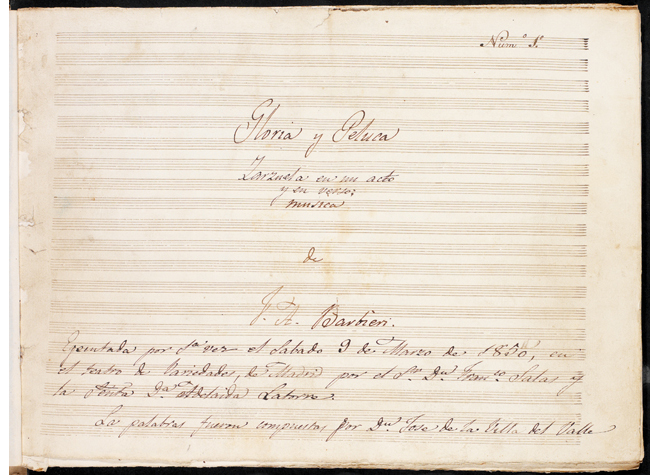 Núm.º 1º
Gloria y Peluca
Zarzuela en un acto
y en verso;
musica
de
F. A. Barbieri.
Ejecutada por 1ª vez el Sabado 9 de Marzo de 1850, en
el teatro de Variedades, de Madrid por el Sr. Dn. Franco. Salas y
la Señra. Dª. Adelaida Latorre.
La palabras fueron compuestas por Dn. Jose de la Villa del Valle